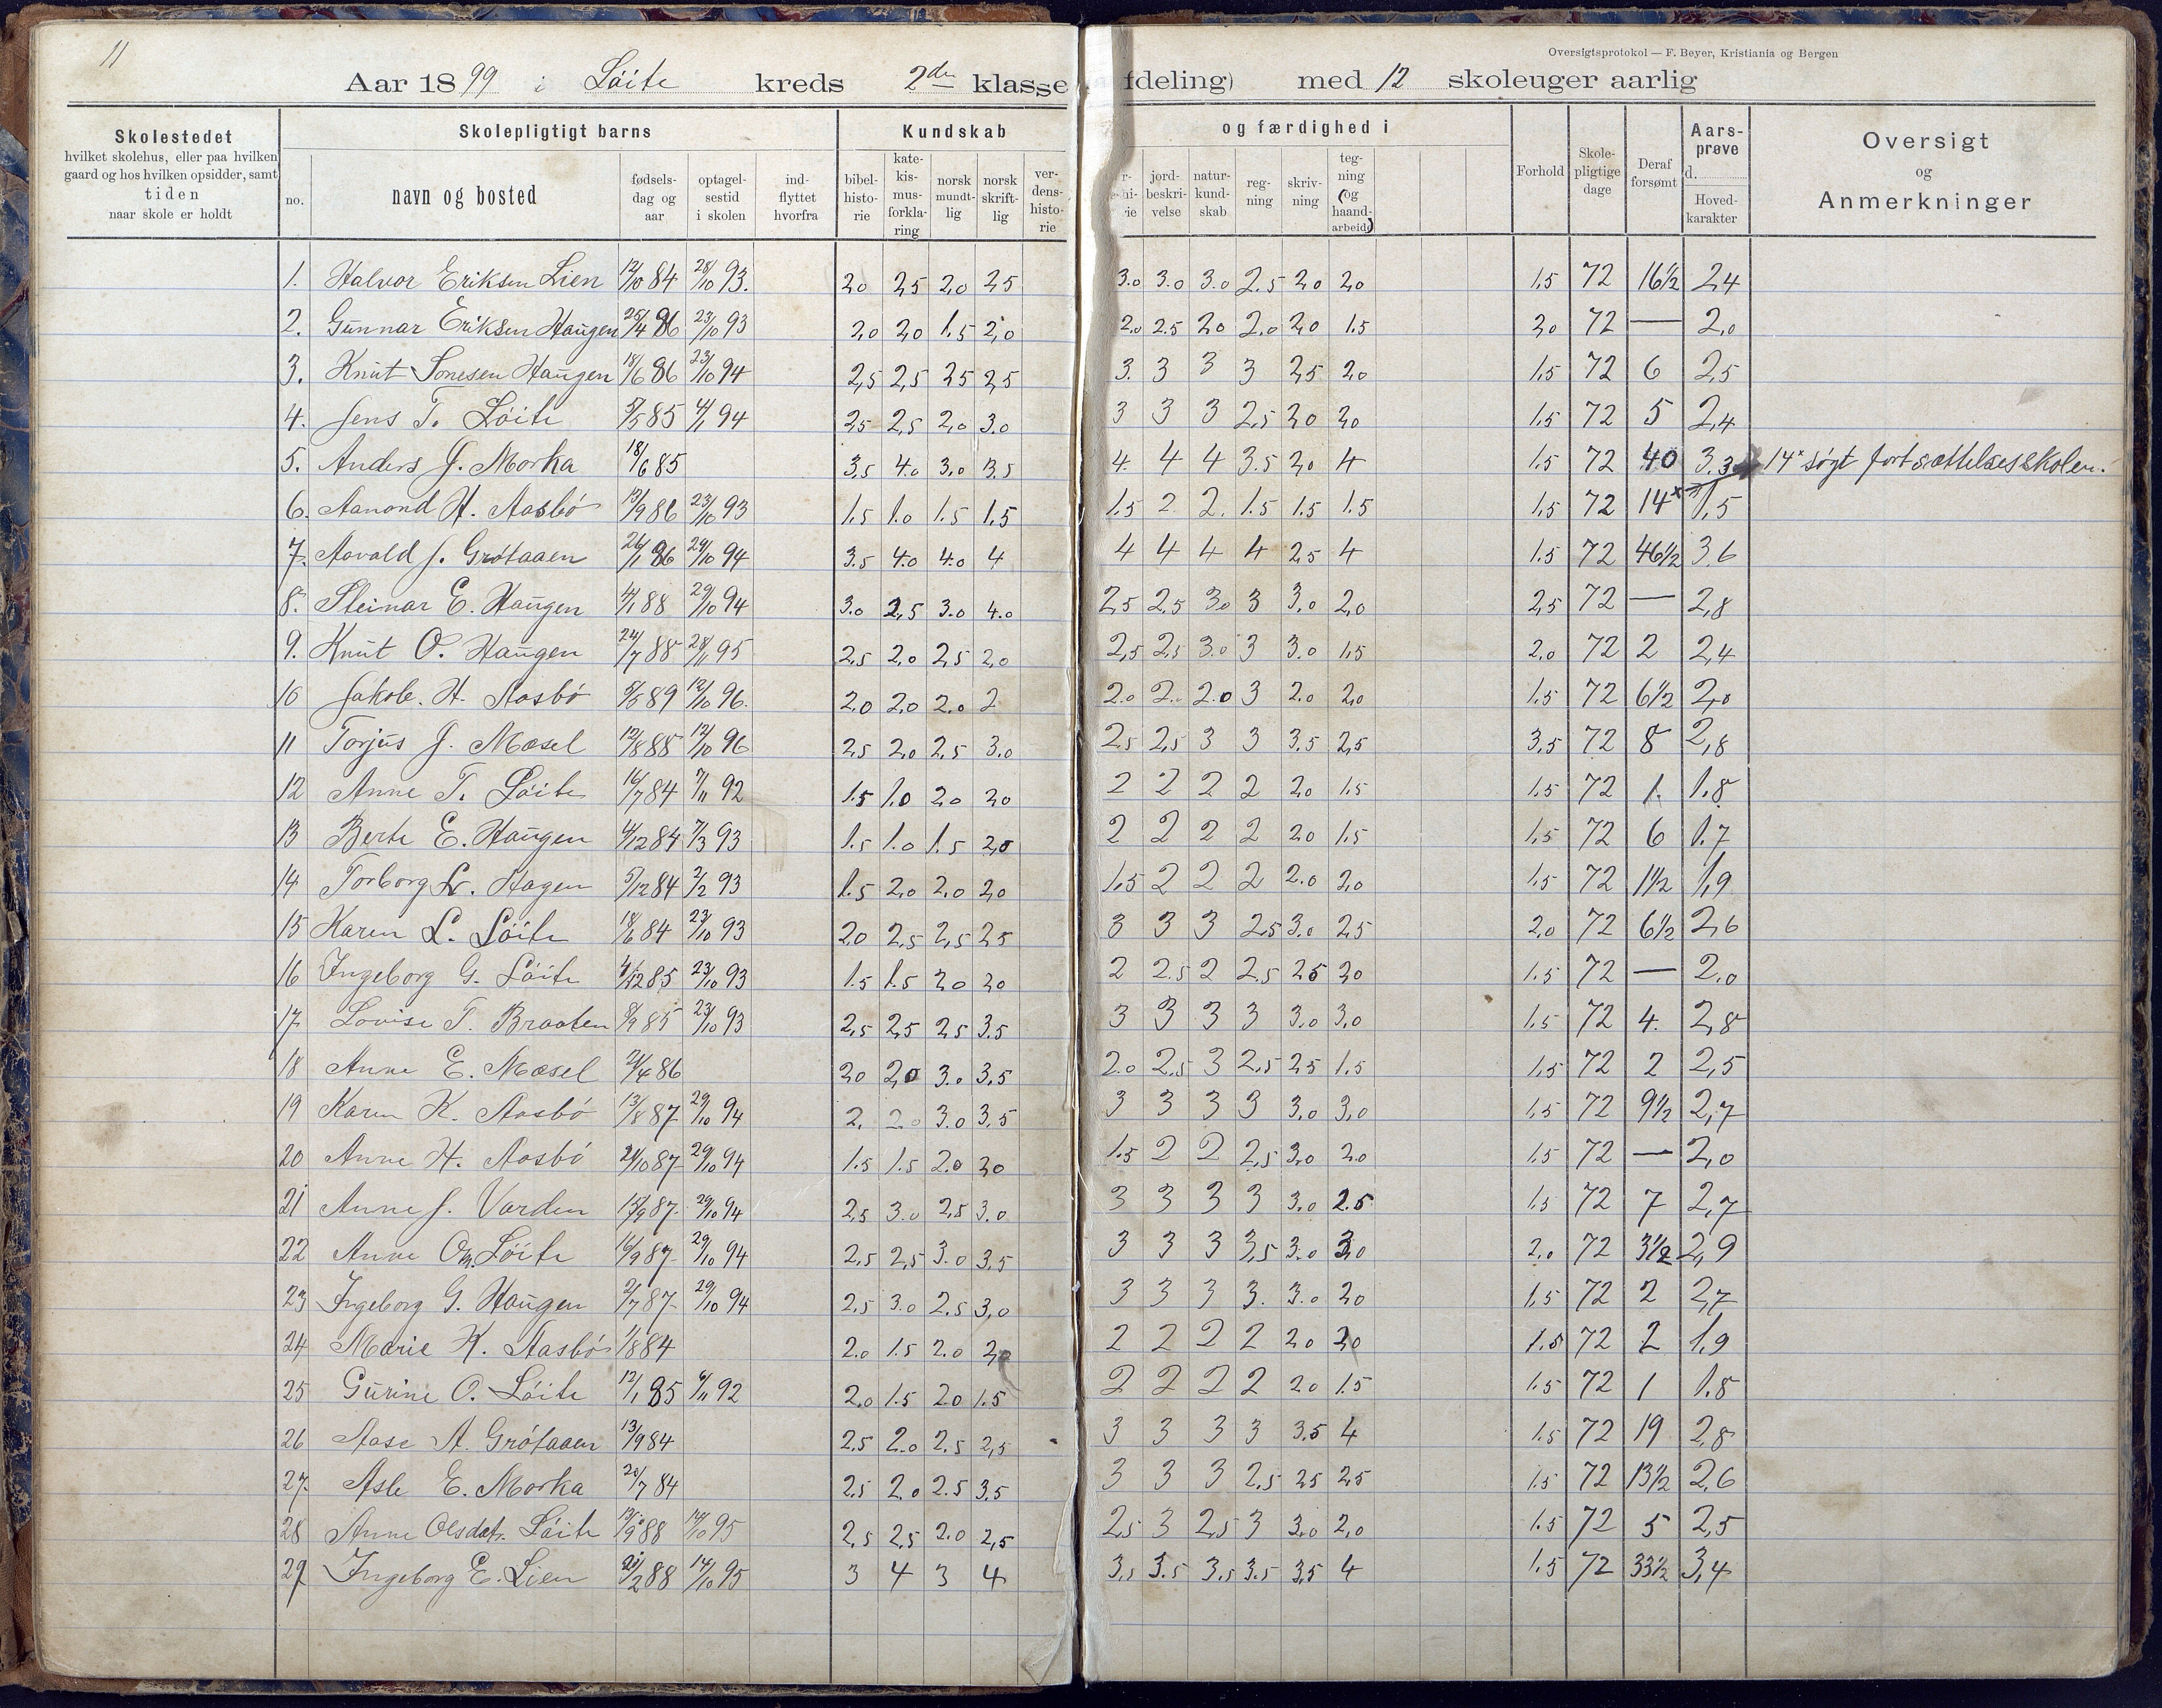 11
Oversigtsprotokol — F. Beyer, Kristiania og Bergen
Aar 1899 i Löite kreds 2den klasse (afdeling) med 12 skoleuger aarlig
Skolestedet
hvilket skolehus, eller paa hvilken
gaard og hos hvilken opsidder, samt
tiden
naar skole er holdt
Skolepligtigt barns
no.
navn og bosted
fødsels-
dag og
aar
optagel-
sestid
i skolen
ind-
flyttet
hvorfra
Kundskab
bibel-
histo-
rie
kate-
kis-
mus-
forkla-
ring
norsk
mundt-
lig
norsk
skrift-
lig
ver-
dens-
histo-
rie
og færdighed i
jord-
beskri-
velse
natur-
kund-
skab
reg-
ning
skriv-
ning
teg-
ning
(og
haand-
arbeide)
Forhold
Skole-
pligtige
dage
Deraf
forsømt
Aars-
prøve
d.
Hoved-
karakter
Oversigt
og
Anmerkninger
1. Halvor Eriksen Lien 12/10 84 28/10 93. 2,0 2,5 2,0 2,5 3.0 3.0 3.0 2.5 2,0 2,0 1,5 72 16½ 2,4
2. Gunnar Eriksen Haugen 25/4 86 23/10 93 2,0 2,0 1.5 2,0 2.0 2.5 2,0 2.0 2,0 1.5 2,0 72 — 2,0
3. Knut Tonesen Haugen 18/6 86 23/10 94 2,5 2,5 2,5 2,5 3. 3 3 3 2,5 2,0 1.5 72 6 2,5
4. Jens T. Löite 5/5 85 4/1 94 2,5 2,5 2,0 3.0 3 3 3 2,5 2,0 2,0 1.5 72 5 2,4
5. Anders J. Morka 18/6 85 3,5 4.0 3,0 3,5 4. 4 4 3.5 2,0 4 1.5 72 40 3.3 14x søgt fortsættelsesskolen.
6. Aanond H. Aasbö 13/9 86 23/10 93 1,5 1.0 1.5 1,5 1.5 2 2. 1.5 1.5 1.5 1,5 72 14x 1,5
7. Aavald J. Grötaaen 26/1 86 29/10 94 3.5 4.0 4.0 4 4 4 4 4 2,5 4 1.5 72 46½ 3,6
8. Steinar E. Haugen 4/1 88 29/10 94 3.0 2,5 3.0 4.0 2,5 2,5 3,0 3 3,0 2,0 2,5 72 — 2,8
9. Knut O. Haugen 24/7 88 28/11 95 2,5 2,0 2,5 2,0 2,5 2,5 3.0 3 3.0 1,5 2.0 72 2 2,4
10 Jakob. H. Aasbö 5/5 89 12/10 96. 2,0 2,0 2.0 2 2.0 2. 2.0 3 2.0 2,0 1.5 72 6½ 2,0
11 Torjus J. Mæsel 12/8 88 12/10 96 2,5 2,0 2,5 3.0 2,5 2,5 3 3 3.5 2,5 3,5 72 8 2,8
12 Anne T. Löite 16/7 84 7/11 92 1.5 1.0 2,0 2,0 2 2 2 2 2,0 1.5 1.5 72 1. 1.8
13 Berte E. Haugen 4/12 84 7/3 93 1.5 1.0 1.5 2,0 2 2 2 2 2,0 1.5 1,5 72 6 1.7
14 Torborg Lr. Hagen 5/12 84 2/2 93 1.5 2,0 2.0 2,0 1,5 2 2 2 2.0 2,0 1.5 72 1½ 1,9
15 Karen L. Löite 18/6 84 23/10 93 2,0 2,5 2,5 2,5 3 3 3 2,5 3.0 2,5 2,0 72 6½ 2,6
16 Ingeborg G. Löite 4/12 85 23/10 93 1.5 1.5 2,0 2,0 2 2.5 2 2.5 2,5 2,0 1.5 72 — 2.0
17 Lovise T. Braaten 8/9 85 23/10 93 2,5 2,5 2,5 3.5 3 3 3 3 3.0 3,0 1.5 72 4. 2,8
18 Anne E. Mæsel 21/4 86 2,0 2,0 3.0 3,5 2.0 2,5 3 2,5 2,5 1.5 1,5 72 2 2,5
19 Karen K. Aasbö 13/8 87 29/10 94 2, 2.0 3.0 3,5 3 3 3 3 3,0 3,0 1.5 72 9½ 2,7
20 Anne H. Aasbö 21/10 87 29/10 94 1.5 1.5 2.0 2,0 1.5 2 2 2,5 3,0 2.0 1.5 72 — 2,0
21 Anne J. Varden 15/9 87. 29/10 94 2,5 3.0 2,5 3.0 3 3 3 3 3,0 2.5 1.5 72 7 2,7
22 Anne Om. Löite 16/9 87 29/10 94 2,5 2,5 3.0 3,5 3 3 3 3,5 3.0 3,0 2.0 72 3½ 2,9
23 Ingeborg G. Haugen 2/7 87 29/10 94 2,5 3.0 2,5 3,0 3 3 3 3. 3.0 2,0 1,5 72 2 2,7
24 Marie K. Aasbö 1/8 84 2.0 1.5 2.0 2,0 2 2 2 2 2,0 2,0 1.5 72 2 1,9
25 Gurine O. Löite 12/1 85 6/11 92 2.0 1.5 2.0 1.5 2 2 2 2 2,0 1.5 1.5 72 1 1.8
26 Aase A. Grötaaen 13/9 84 2.5 2.0 2,5 2,5 3 3 3 3 3.5 4 1.5 72 19 2,8
27. Asle E. Morka 20/7 84 2.5 2.0 2.5 3.5 3 3 3 2,5 2,5 2,5 1.5 72 13½ 2,6
28 Anne Olsdatr. Löite 13/9 88 14/10 95 2,5 2,5 2.0 2,5 2,5 3 2,5 3 3.0 2,0 1.5 72 5 2,5
29 Ingeborg E. Lien 21/2 88 14/10 95 3 4 3 4 3,5 3.5 3,5 3.5 3,5 4 1.5 72 33½ 3,4